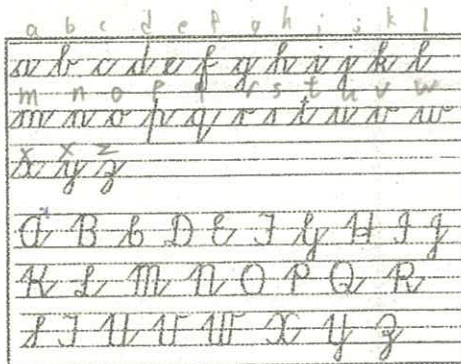 a b c d e f g h i j k l
a b c d e f g h i j k l
m n o p q r s t u v w
m n o p q r s t u v w
x x z
x y z
A B C D E F G H I J
K L M N O P Q R
S T U V W X Y Z